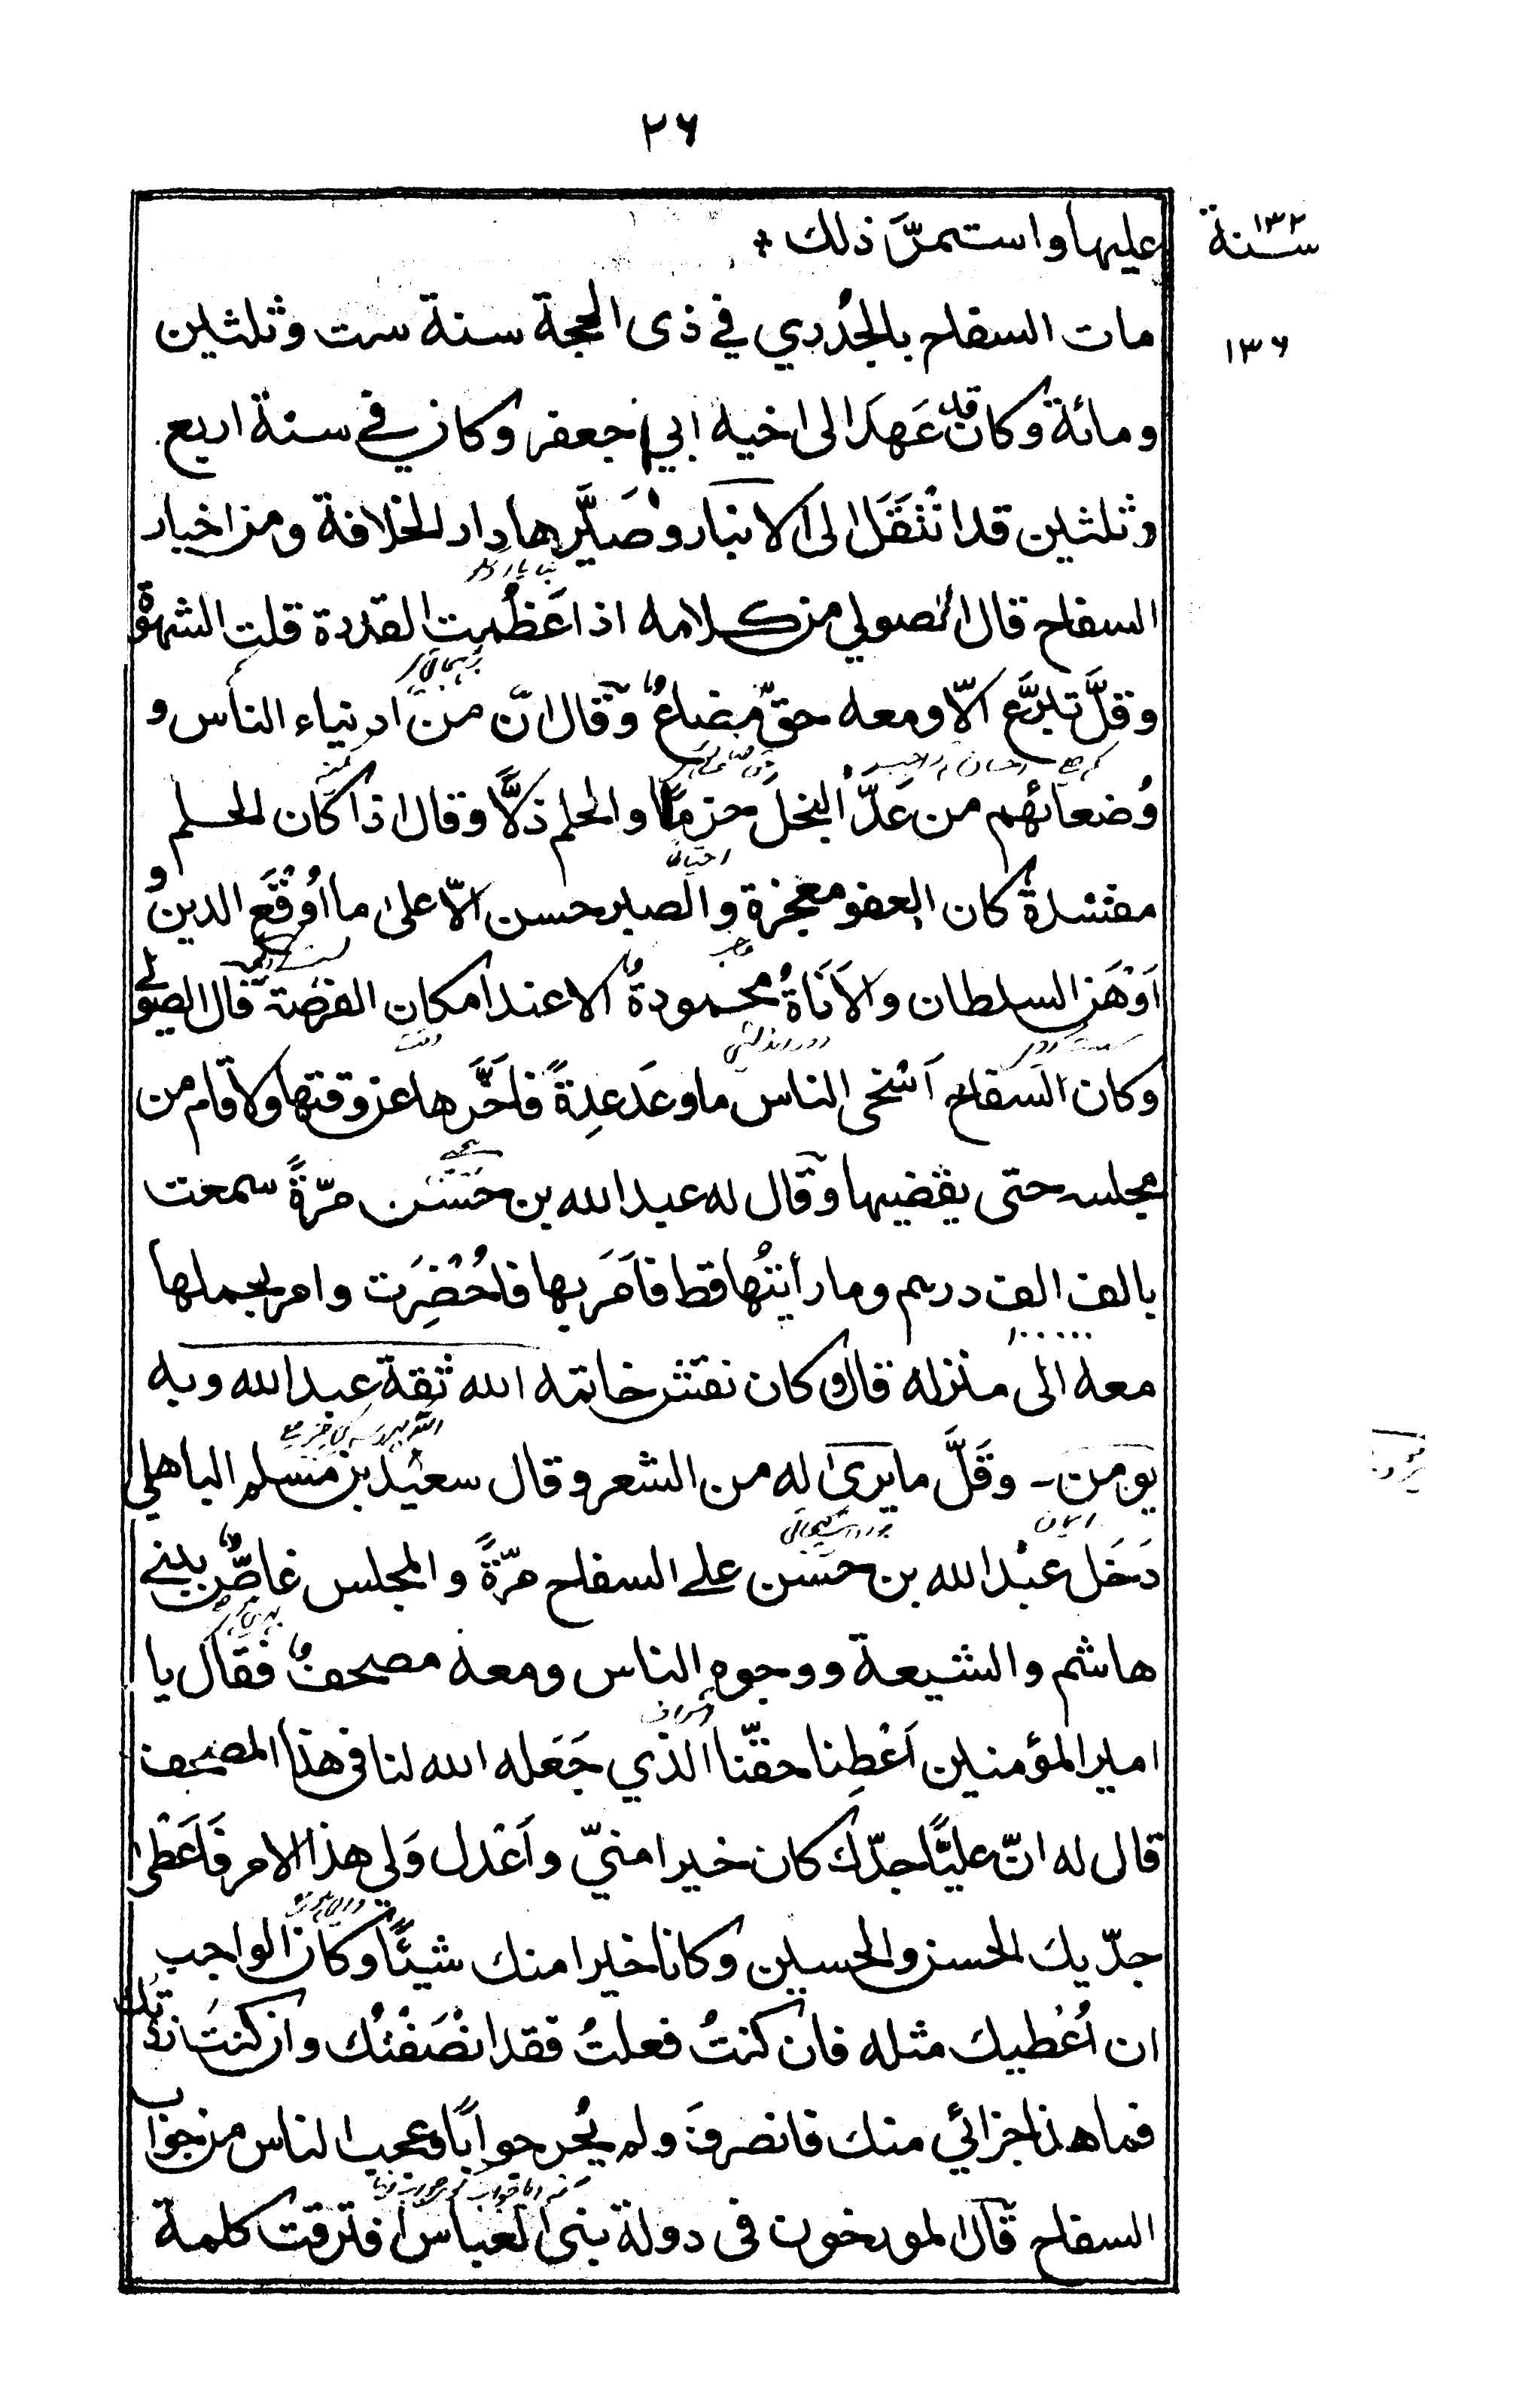 ٢٦
سنة ١٣٢
عليها واستمرَّ ذلك *
١٣٦
مات السفاح بالجُدري في ذى الحجة سنة ست وثلثين
ومائة وكان قد عَهِدَ الى اخيه ابي جعفر وكان في سنة اربع
وثلثين قد انْتَقَلَ الى الانبار وصَيَّرها دار الخلافة ومن اخبار
السفاح قال الصولي من كلامه اذا عَظُمت القدرة قلت الشهوة
وقلَّ تبرَّع الّا ومعه حقّ مضاعٌ وقال انّ من ادنياء الناس و
وُضعائهم من عَدَّ البخلَ حزمًا والحلم ذلًّا وقال اذا كان الحلم
مفسدةً كان العفو معجزة والصبر حسن الّا على ما اُوْقَع الدين و
اَوْهَن السلطان والاَنَاةُ محمودةٌ الا عند امكان الفرصة قال الصولي
وكان السفاح اَسْخى الناس ما وعَد عِدةً فاَخَّرها عن وقتها ولا قام من
مجلسه حتى يقضيها وقال له عبد الله بن حَسَن مرّةً سمعت
بالف الف درهم وما رأيتُها قط فاَمَر بها فاُحْضِرَت وامر بحملها
١٠٠٠٠٠٠
معه الى منزله قال وكان نقش خاتمه الله ثقة عبد الله وبه
يومن ـ وقَلَّ ما يرى له من الشعر وقال سعيد بن مسلم الباهلي
دَخَل عبْد الله بن حسَن على السفاح مرّةً والمجلس غاصٌّ ببني
هاشم والشيعة ووجوه الناس ومعه مصحفٌ فقال يا
امير المؤمنين اَعْطِنا حقّنا الذي جَعَله الله لنا فى هذا المصحف
قال له انّ عليًّا جدّك كان خيرا منيّ واَعْدل وَلي هذا الامر فَاَعْطى
جدّيك الحسن والحسين وكانا خيرا منك شيئًا وكان الواجب
ان اُعْطيك مثله فان كنتُ فعلتُ فقد انْصَفْتُك وان كنتُ زدتُك
فما هذا جزائي منك فانصرفَ ولم يُحِر جوابًا وعجب الناس من جواب
السفاح قال المورخون فى دولة بنى العباس افترقت كلمة